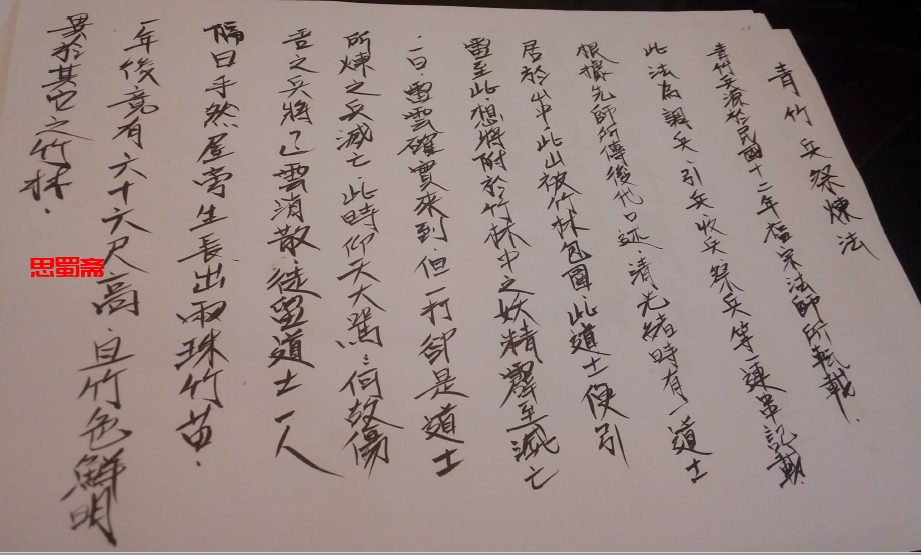 青竹兵祭煉法
青竹兵源於民國十二年 宗法師所転載.
此法為調兵、引兵收兵、祭兵等一連串記載
根據先師所傳後代口述.清光緒時有一道士
居於山中此山被竹林包圍.此道士便引
雷至此.想將附於竹林中之妖精霹至滅亡
一日.雷雲確實來到但一打卻是道士
所煉之兵滅亡.此時仰天大罵:何故傷
吾之兵將已雲消散徒留道士一人
隔日手然屋旁生長出兩珠竹苗.
一年後竟有六十六尺高.且竹色鮮明
異於其它之竹林.
思蜀斋